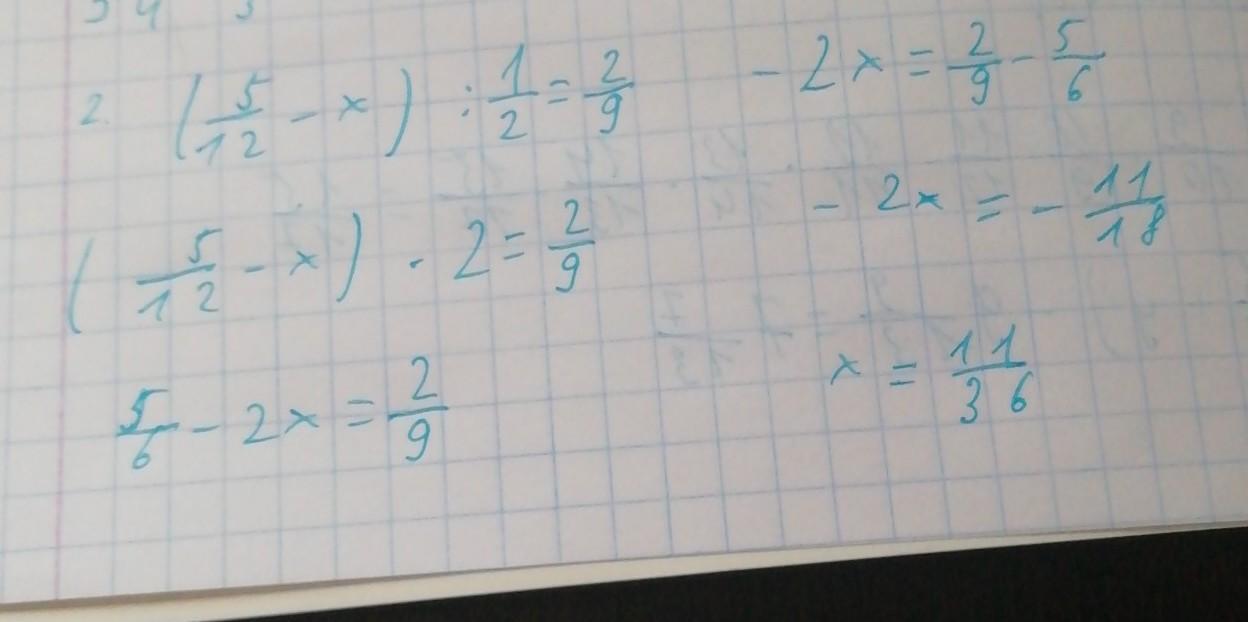 2. (5/12 - x) : 1/2 = 2/9
(5/12 - x) · 2 = 2/9
5/6 - 2x = 2/9
- 2x = 2/9 - 5/6
- 2x = - 11/18
x = 11/36